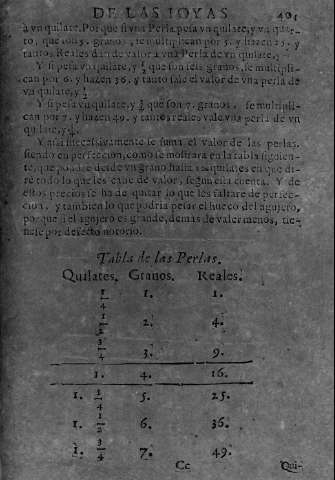 DE LAS JOYAS
à vn quilate. Porque si vna Perla pesa vn quilate, y vn quar-
to, que son 5. granos, se multiplican por 5. y hazen 25. y
tantos Reales dan de valor a vna Perla de vn quilate,
Y si pesa vn quilate, y ½ que son seis granos, se multipli-
can por 6. y hazen 36. y tanto sale el valor de vna perla de
vn quilate, y ½
Y si pesa vn quilate, y ¾ que son 7. granos, se multipli-
can por 7. y hazen 49. y tantos reales vale vna perla de vn
quilate, y ¾.
Y assi sucessiuamente se suma el valor de las perlas,
siendo en perfeccion, como se mostrarà en la tabla siguien-
te, que pondre desde vn grano hasta quilates en que di-
rè todo lo que les cabe de valor, segun esta cuenta. Y de
estos precios se ha de quitar lo que les faltare de perfec-
cion, y tambien lo que podria pesar el hueco del agujero,
por que si el agujero es grande, demàs de valer menos, tie-
nese por defecto notorio.
Tabla de las Perlas.
Quilates. Granos. Reales.
1/4 1. 1.
1/2 2. 4.
3/4 3. 9.
1. 4. 16.
1. 1/4 5. 25.
1. 1/2 6. 36.
1. 3/4 7. 49.
Cc Qui-